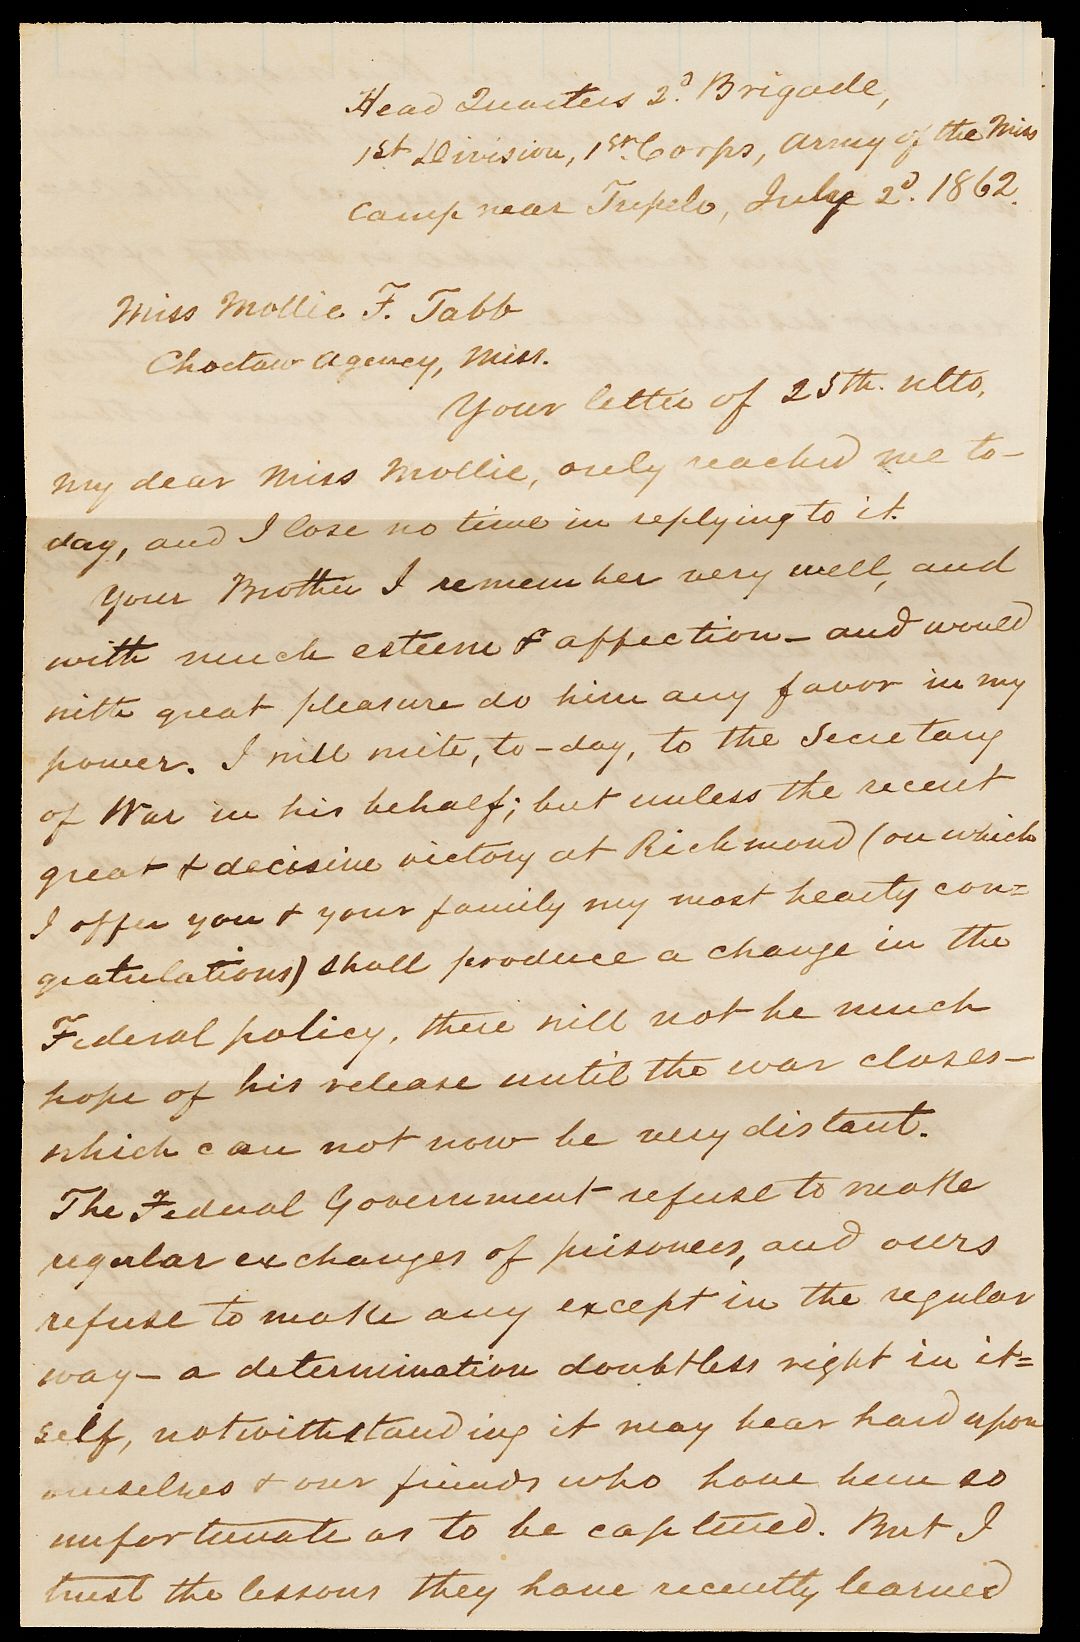 Head Quarters 2d. Brigade,
1st Division, 1st. Corps, Army of the Miss
Camp near Tupelo, July 2d. 1862.
Miss Mollie F. Tabb
Choctaw Agency, Miss.
Your letter of 25th. ulto,
my dear Miss Mollie, only reached me to-
day, and I lose no time in replying to it.
Your Brother I remember very well, and
with much esteem & affection - and would
with great pleasure do him any favor in my
power. I will write, to-day, to the Secretary
of War in his behalf; but unless the recent
great & decisive victory at Richmond (on which
I offer you & your family my most hearty con=
gratulations) shall produce a change in the
Federal policy, there will not be much
hope of his release until the war closes -
which can not now be very distant.
The Federal Government refuse to make
regular exchanges of prisoners, and ours
refuse to make any except in the regular
way - a determination doubtless right in it=
self, notwithstanding it may bear hard upon
ourselves & our friends who have been so
unfortunate as to be captured. But I
trust the lessons they have recently learned